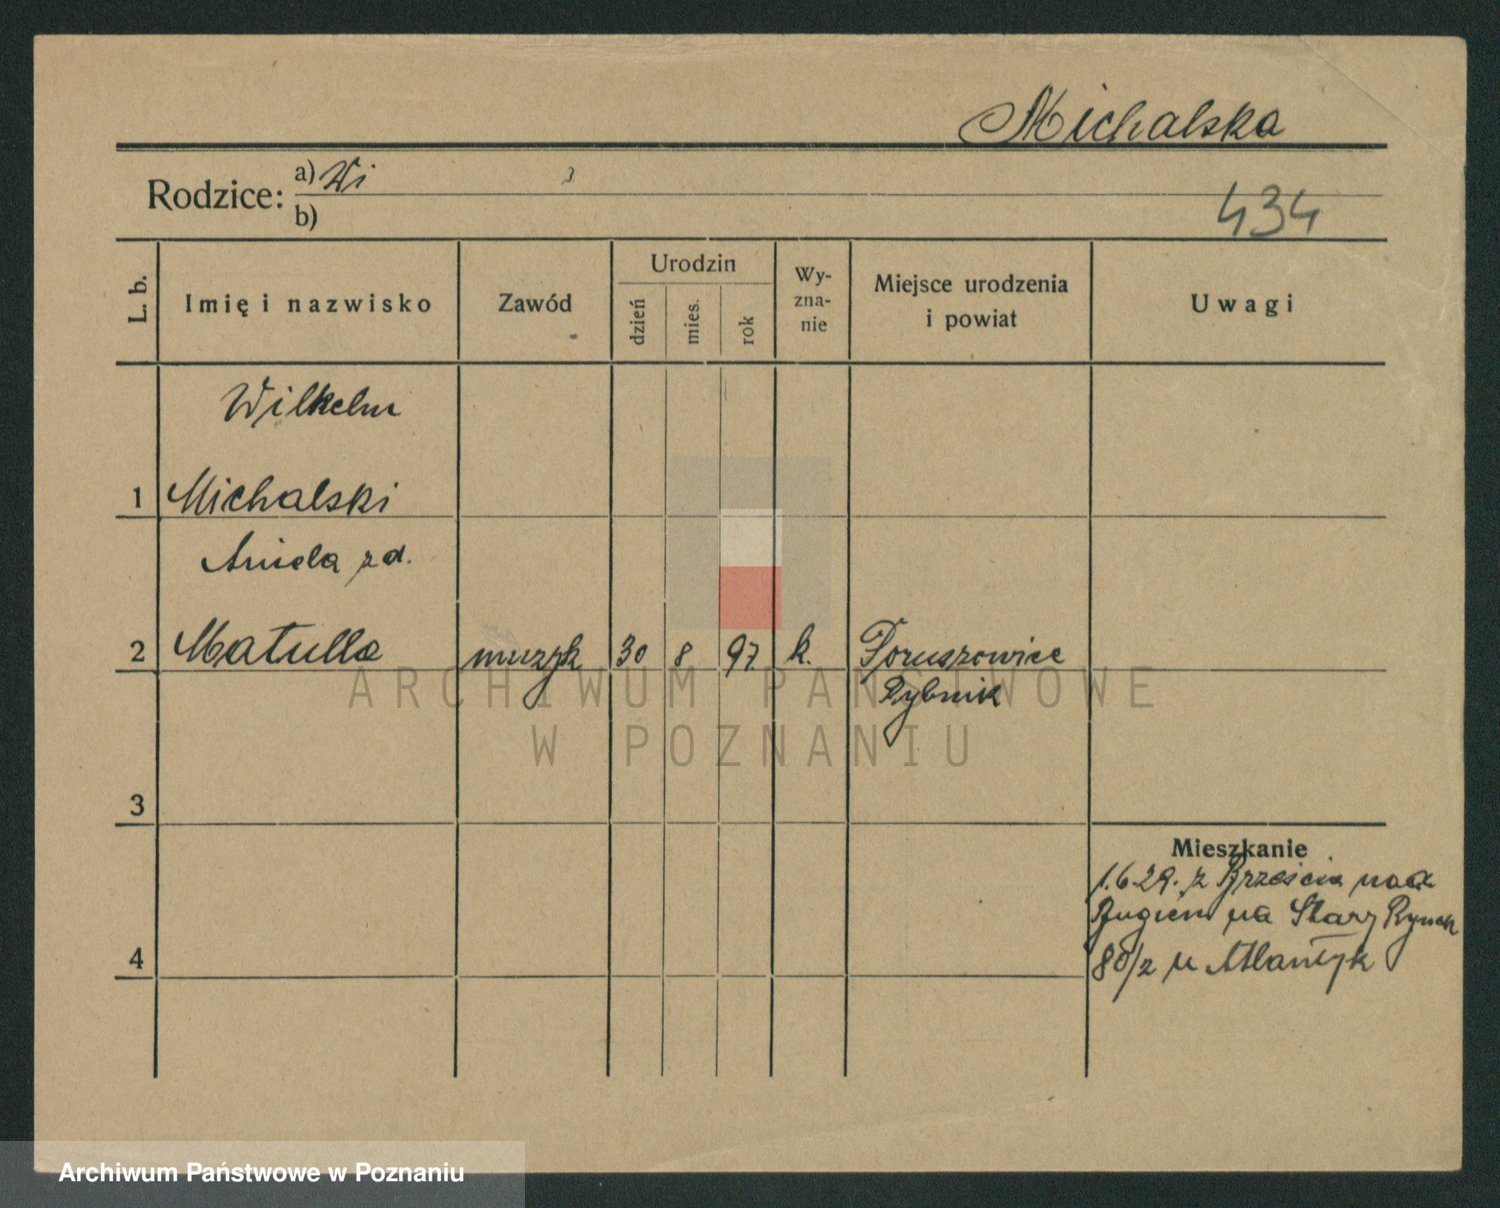 Michalska
Rodzice: a) Wi
b)
434
L. b.
Imię i nazwisko
Zawód
Urodzin
dzień
mies.
rok
Wy-
zna-
nie
Miejsce urodzenia
i powiat
Uwagi
Wilhelm
1 Michalski
Aniela zd.
2 Matulla muzyk 30 8 97. k. Poruszowice
Rybnik
ARCHIWUM PAŃSTWOWE
W POZNANIU
3
Mieszkanie
1.6.29. z Brześcia nad
Bugiem na Stary Rynek
4
80/2 u Atlantyk
Archiwum Państwowe w Poznaniu